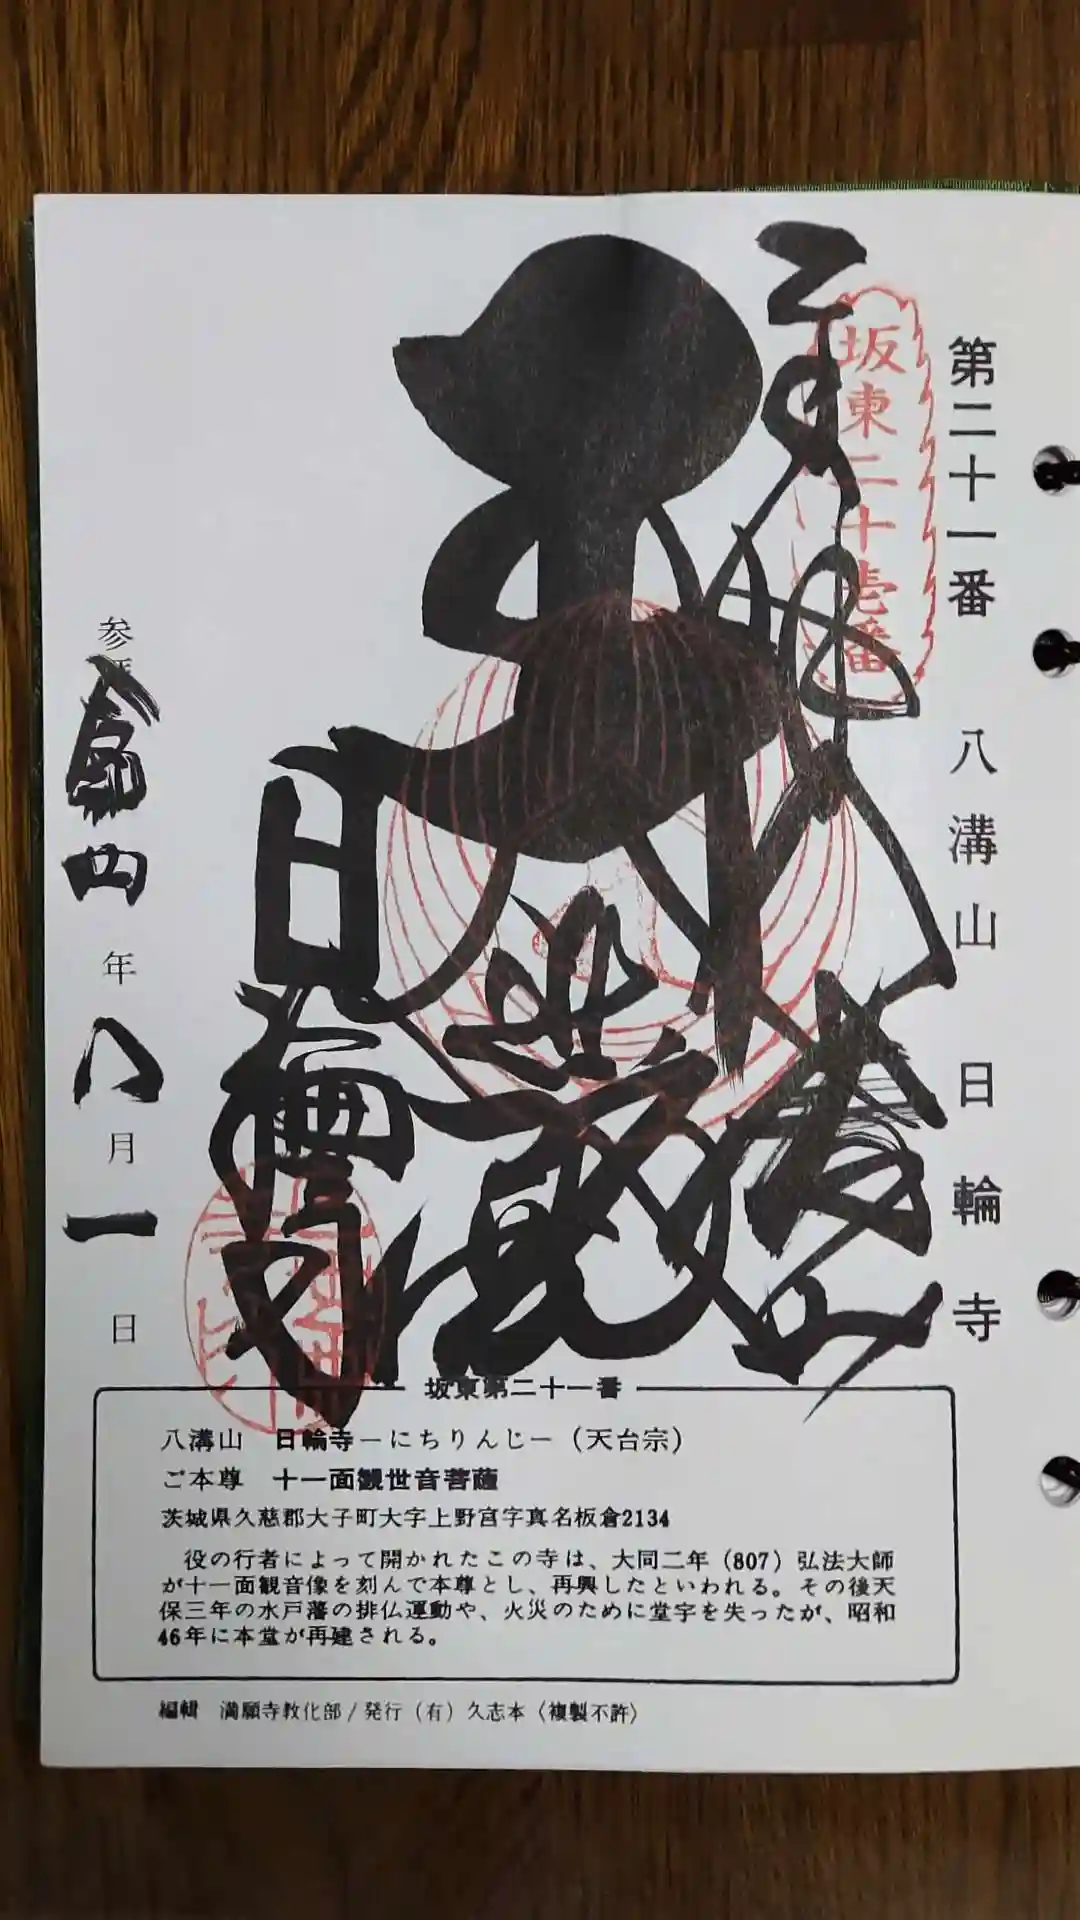 第二十一番 八溝山 日輪寺
坂東二十壱番
奉拝
八溝山
大悲殿
日輪寺
参拝
令和四年八月一日
坂東第二十一番
八溝山 日輪寺―にちりんじ―（天台宗）
ご本尊 十一面観世音菩薩
茨城県久慈郡大子町大字上野宮字真名板倉2134
役の行者によって開かれたこの寺は、大同二年（807）弘法大師
が十一面観音像を刻んで本尊とし、再興したといわれる。その後天
保三年の水戸藩の排仏運動や、火災のために堂宇を失ったが、昭和
46年に本堂が再建される。
編輯 満願寺教化部/発行（有）久志本〈複製不許〉